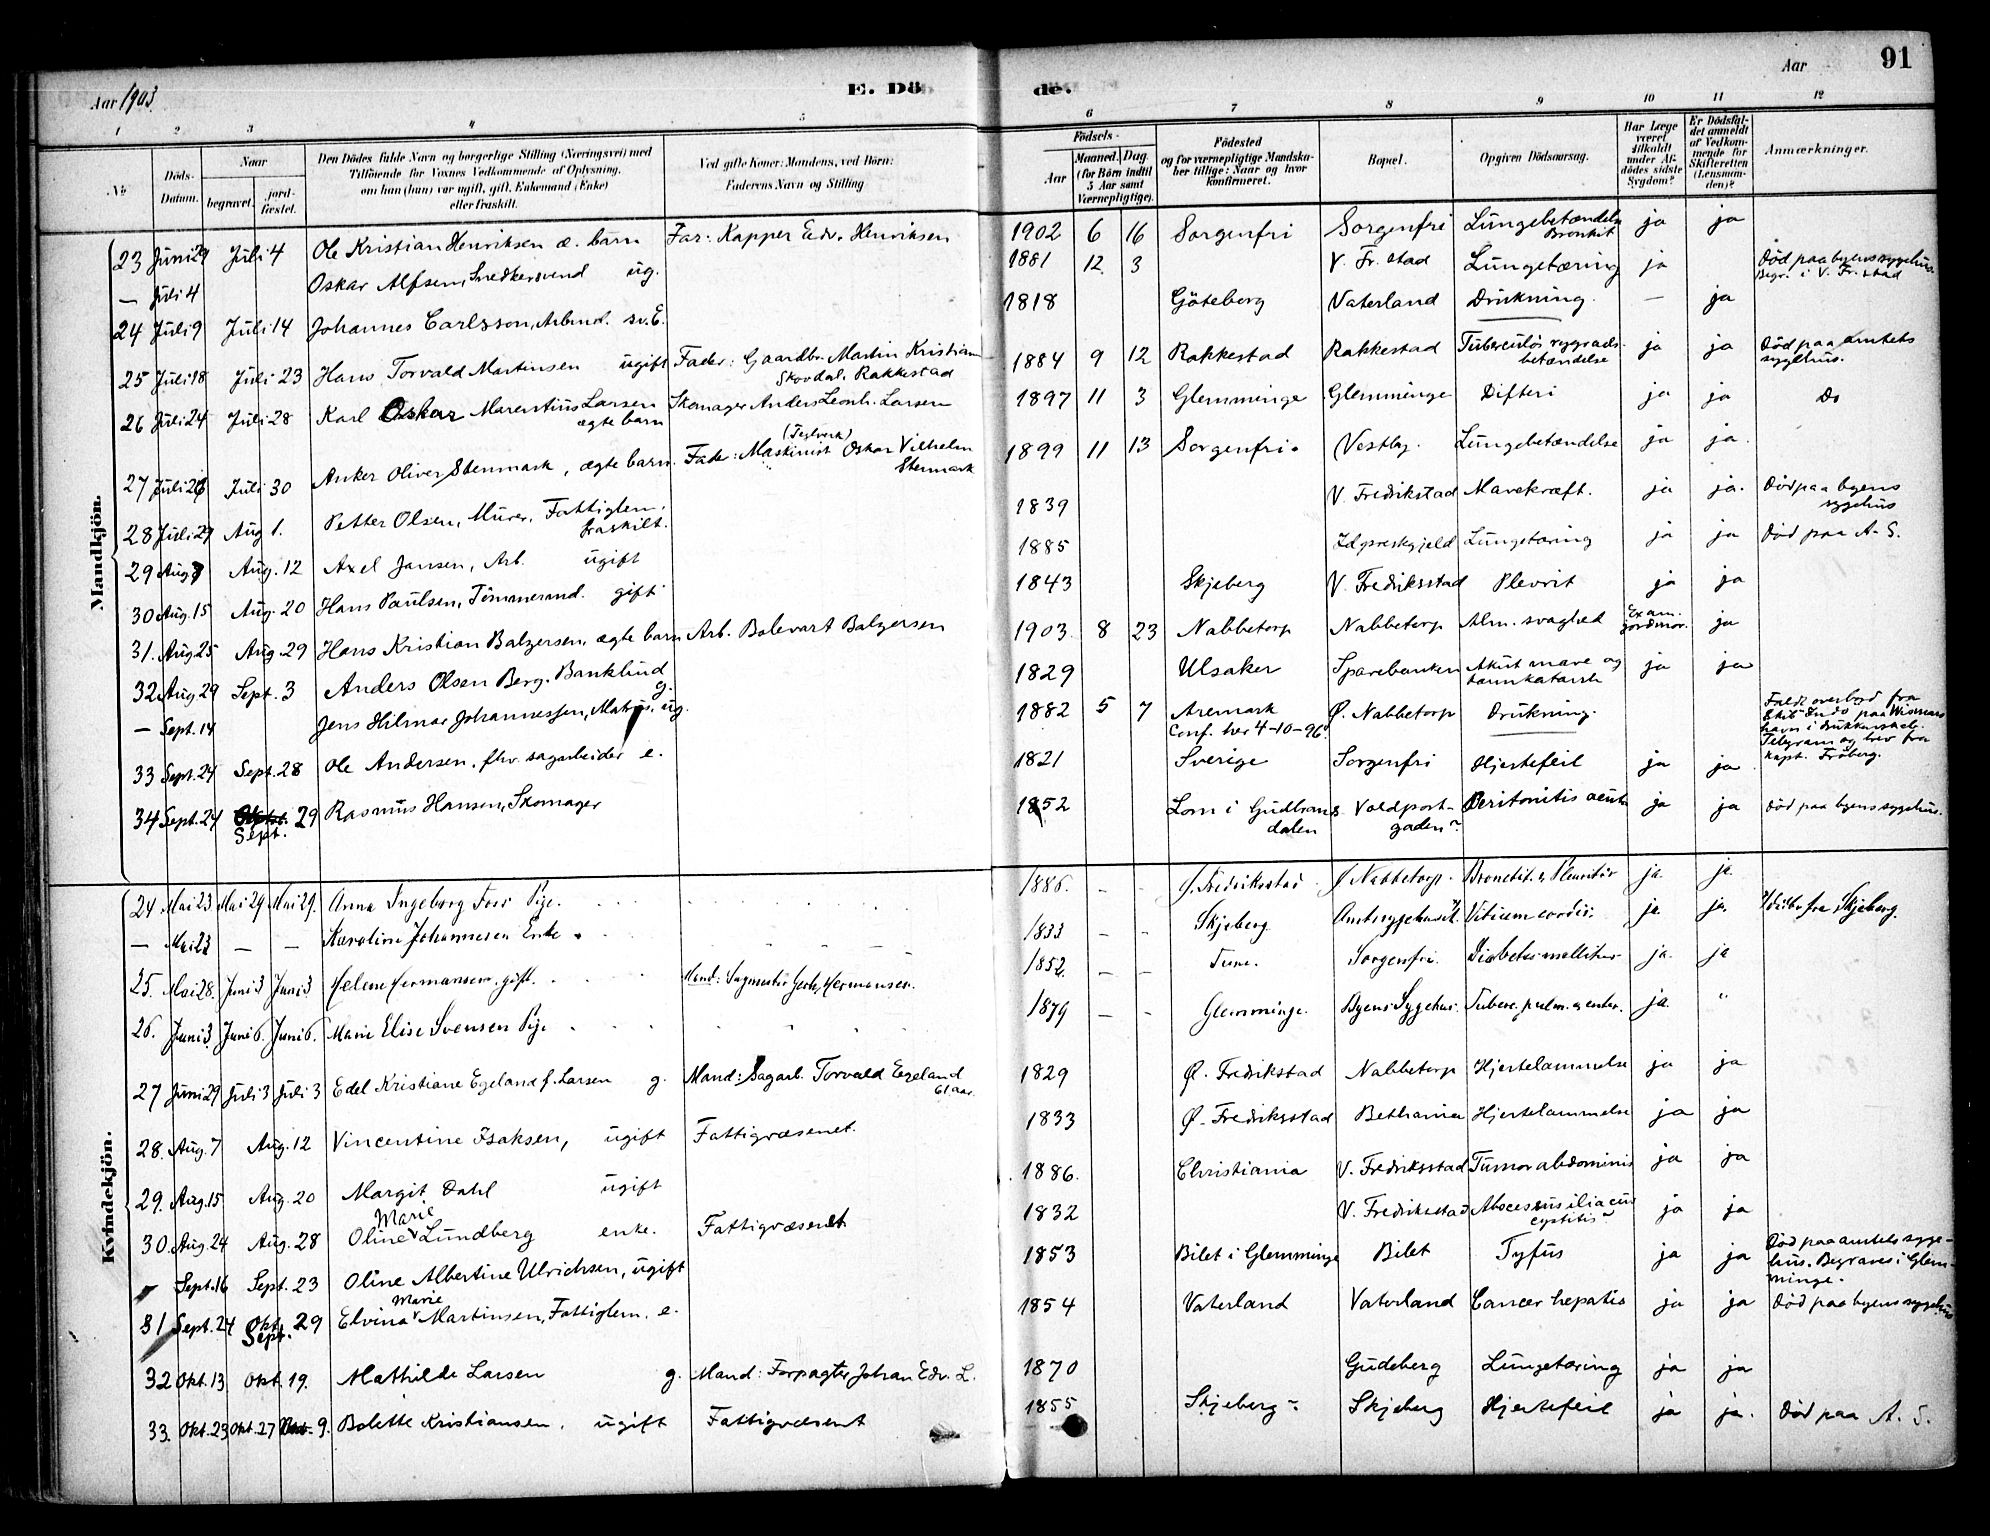 Aar 1903. E. Döde. Aar 91
1 2 3 4 5 6 7 8 9 10 11 12
№ Döds-Datum. Naar begravet. jord-fæstet. Den Dödes fulde Navn og borgerlige Stilling (Næringsvei) med Tilföiende for Voxnes Vedkommende af Oplysning, om han (hun) var ugift, gift, Enkemand (Enke) eller fraskilt. Ved gifte Koner: Mandens, ved Börn: Faderens Navn og Stilling Födsels- Aar Maaned. Dag (for Börn indtil 5 Aar samt Værnepligtige). Födested og for værnepligtige Mandskaber tillige: Naar og hvor konfirmeret. Bopæl. Opgiven Dödsaarsag. Har Læge været tilkaldt under Afdödes sidste Sygdom? Er Dödsfaldet anmeldt af Vedkommende for Skifteretten (Lensmanden)? Anmærkninger.
Mandkjön.
23 Juni 29 Juli 4 Ole Kristian Henriksen æ. barn Far: Kapper Edv. Henriksen 1902 6 16 Sorgenfri Sorgenfri Lungebetændelse Bronkit ja ja
— Juli 4 Oskar Alfsen, Snedkersvend ug. 1881 12 3 V. Fr. stad Lungetæring ja Död paa byens sygehus. Begr. i V. Fr. stad
24 Juli 9 Juli 14 Johannes Carlsson, Arbmd. sv. E. 1818 Göteborg Vaterland Drukning. — ja
25 Juli 18 Juli 23 Hans Torvald Martinsen ugift Fader: Gaardbr. Martin Kristian Skovdal, Rakkestad 1884 9 12 Rakkestad Rakkestad Tuberculös rygradsbetændelse ja ja Död paa amtets sygehus.
26 Juli 24 Juli 28 Karl Oskar Marentius Larsen ægte barn Skomager Anders Leonh. Larsen 1897 11 3 Glemminge Glemminge Difteri ja ja Do
27 Juli 26 Juli 30 Anker Oliver Stenmark, ægte barn. Fader: Maskinist (Teglverk) Oskar Vilhelm Stenmark 1899 11 13 Sorgenfri. Vestby. Lungebetændelse ja ja.
28 Juli 29 Aug 1. Petter Olsen, Murer, Fattiglem, fraskilt. 1839 V. Fredrikstad Mavekræft. ja ja. Död paa byens sygehus
29 Aug 8 Aug. 12 Axel Jansen, Arb. ugift 1885 Id præstgjeld Lungetæring ja ja Död paa A. S.
30 Aug. 15 Aug. 20 Hans Paulsen, Tömmermd. gift 1843 Skjeberg V. Fredriksstad Plevrit ja ja
31. Aug. 25 Aug. 29 Hans Kristian Balzersen, ægte barn Arb. Bolevart Balzersen 1903. 8 23 Nabbetorp Nabbetorp Alm. svaghed Exam. jordmor. ja
32 Aug. 29 Sept. 3 Anders Olsen Berg. Bankbud g. 1829 Ulsaker Sparebanken Akut mave og tarmkatarrh ja ja
— Sept. 14 Jens Hilmar Johannessen, Matros, ug. 1882 5 7 Aremark Conf. her 4-10-96. Ö. Nabbetorp Drukning. Faldt overbord fra Skib "Indo" paa Wismars havn i drukkenskab. Telegram og brev fra kapt. Fröberg.
33 Sept. 24 Sept. 28 Ole Andersen, fhv. sagarbeider e. 1821 Sverige Sorgenfri Hjertefeil ja ja
34 Sept. 24 Sept. 29 Rasmus Hansen, Skomager 1852 Lom i Gudbrandsdalen Voldportgaden Peritonitis acuta ja ja Död paa byens sygehus.
Kvindekjön.
24 Mai 23. Mai 29. Mai 29. Anna Ingeborg Foss Pige. 1886. — — Ö. Fredriksstad Ö Nabbetorp. Bronchit. & Pleuritis ja ja.
— Mai 23 — — Karoline Johannesen Enke. 1833 — — Skjeberg Amtssygehuset Vitium cordis. ja. ja. Udskr fra Skjeberg.
25. Mai 28. Juni 3 Juni 3 Helene Hermansen, gift. Mand: Sagmester Gerh. Hermansen. 1852. — — Tune. Sorgenfri. Diabetes mellitus ja. ja
26. Juni 3. Juni 6. Juni 6. Marie Elise Svensen Pige 1879 — — Glemminge. Byens Sygehus. Tuberc. pulm. & enter. ja. "
27 Juni 29 Juli 3 Juli 3 Edel Kristiane Egeland f. Larsen g. Mand: Sagarb. Torvald Egeland 61 aar. 1829 Ö. Fredrikstad Nabbetorp Hjertelammelse ja ja
28. Aug. 7 Aug. 12 Vincentine Isaksen, ugift Fattigvæsenet. 1833 Ö. Fredriksstad Bethania Hjertelammelse ja ja
29. Aug. 15 Aug. 20 Margit Dahl ugift 1886. Christiania V. Fredriksstad Tumor abdominis ja ja
30. Aug. 24 Aug. 28 Oline Marie Lundberg enke. Fattigvæsenet 1832 V. Fredrikstad Abscessus iliacus cystitis ja ja
Sept. 16 Sept. 23 Oline Albertine Ulrichsen, ugift 1853 Bilet i Glemminge Bilet Tyfus ja ja Död paa amtets sygehus. Begraves i Glemminge.
31 Sept. 24 Okt. Sept. 29 Elvina Marie Martinsen, Fattiglem, e. 1854 Vaterland Vaterland Cancer hepatis ja ja Död paa byens sygehus
32 Okt. 13 Okt. 19. Mathilde Larsen g. Mand: Forpagter Johan Edv. L. 1870 Gudeberg Lungetæring ja ja
33. Okt. 23 Okt. 27 Nov. 9. Bolette Kristiansen, ugift Fattigvæsenet 1855 Skjeberg Skjeberg Hjertefeil ja ja. Död paa A. S.